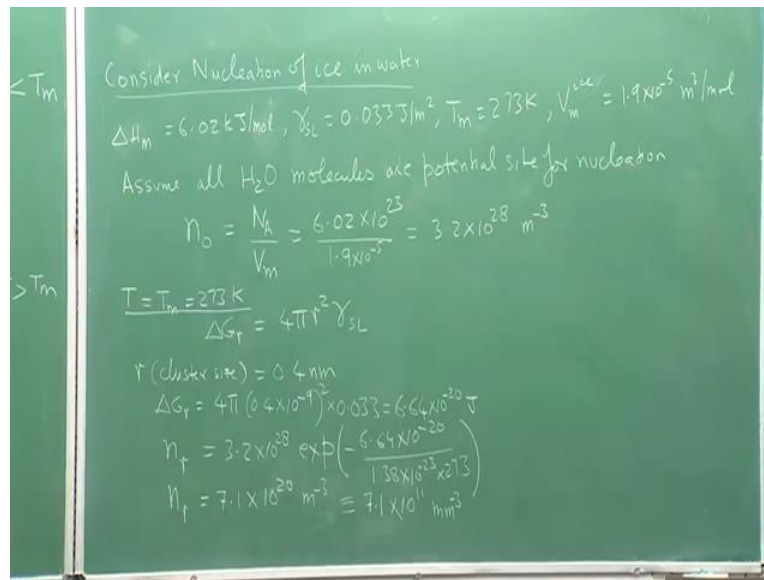 < Tm
> Tm
Consider Nucleation of ice in water
ΔHm = 6.02 kJ/mol, γSL = 0.033 J/m², Tm = 273 K, Vm^ice = 1.9×10⁻⁵ m³/mol
Assume all H₂O molecules are potential site for nucleation
n₀ = NA/Vm = 6.02×10²³/1.9×10⁻⁵ = 3.2×10²⁸ m⁻³
T = Tm = 273 K
ΔGr = 4πr²γSL
r (cluster size) = 0.4 nm
ΔGr = 4π(0.4×10⁻⁹)²×0.033 = 6.64×10⁻²⁰ J
nr = 3.2×10²⁸ exp(-6.64×10⁻²⁰/1.38×10⁻²³×273)
nr = 7.1×10²⁰ m⁻³ ≡ 7.1×10¹¹ mm⁻³